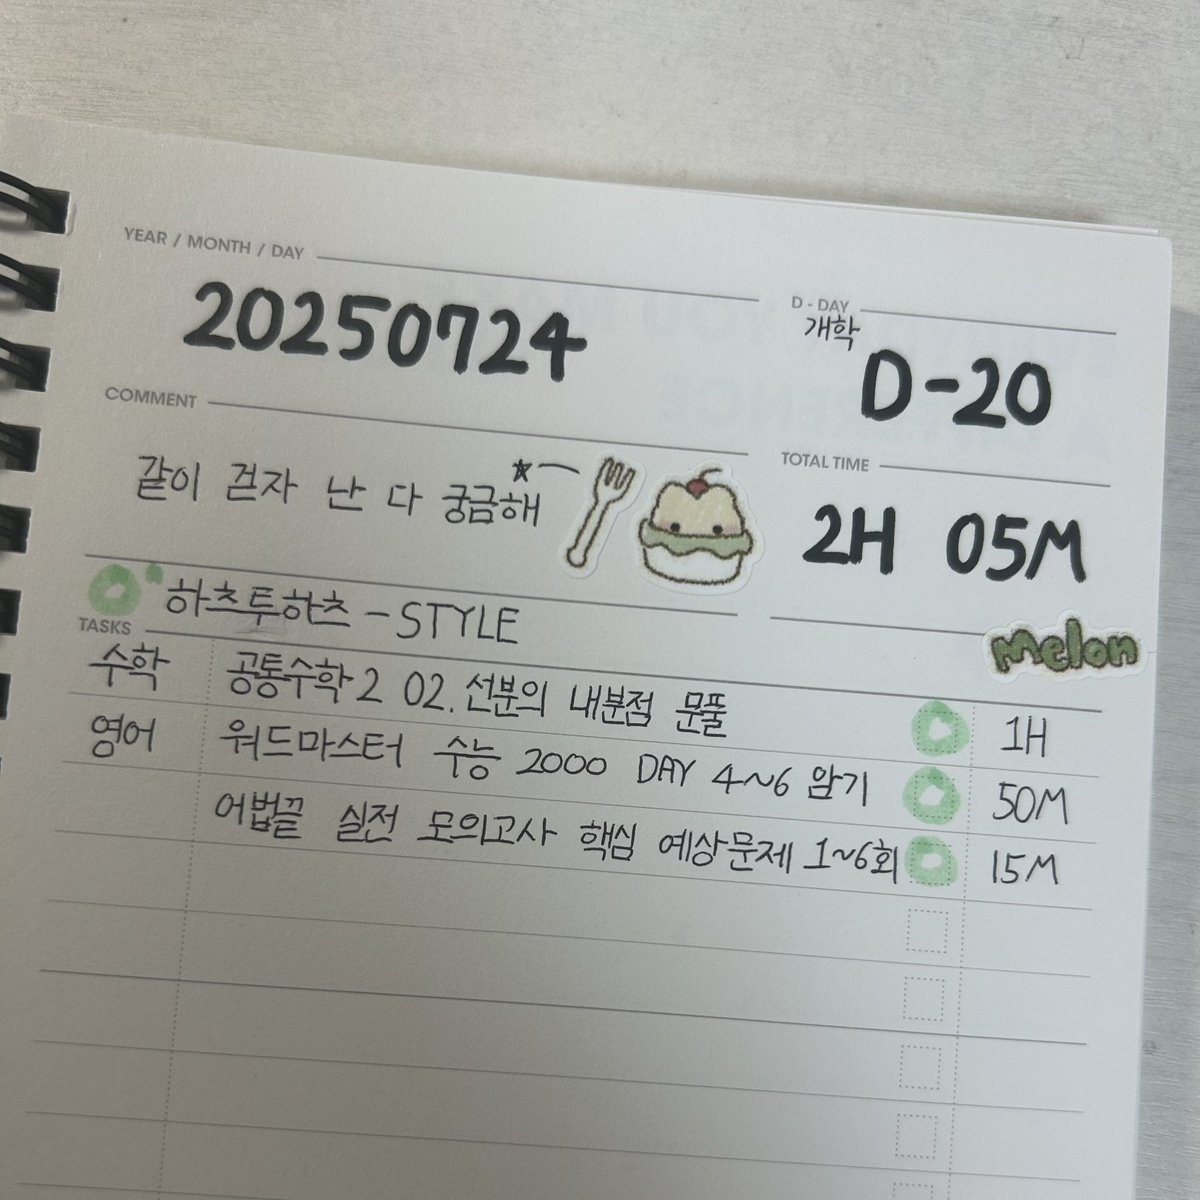 YEAR / MONTH / DAY
20250724
D - DAY
개학
D-20
COMMENT
같이 걷자 난 다 궁금해
TOTAL TIME
2H 05M
하츠투하츠 - STYLE
melon
TASKS
수학 공통수학2 02. 선분의 내분점 문풀 1H
영어 워드마스터 수능 2000 DAY 4~6 암기 50M
어법끝 실전 모의고사 핵심 예상문제 1~6회 15M